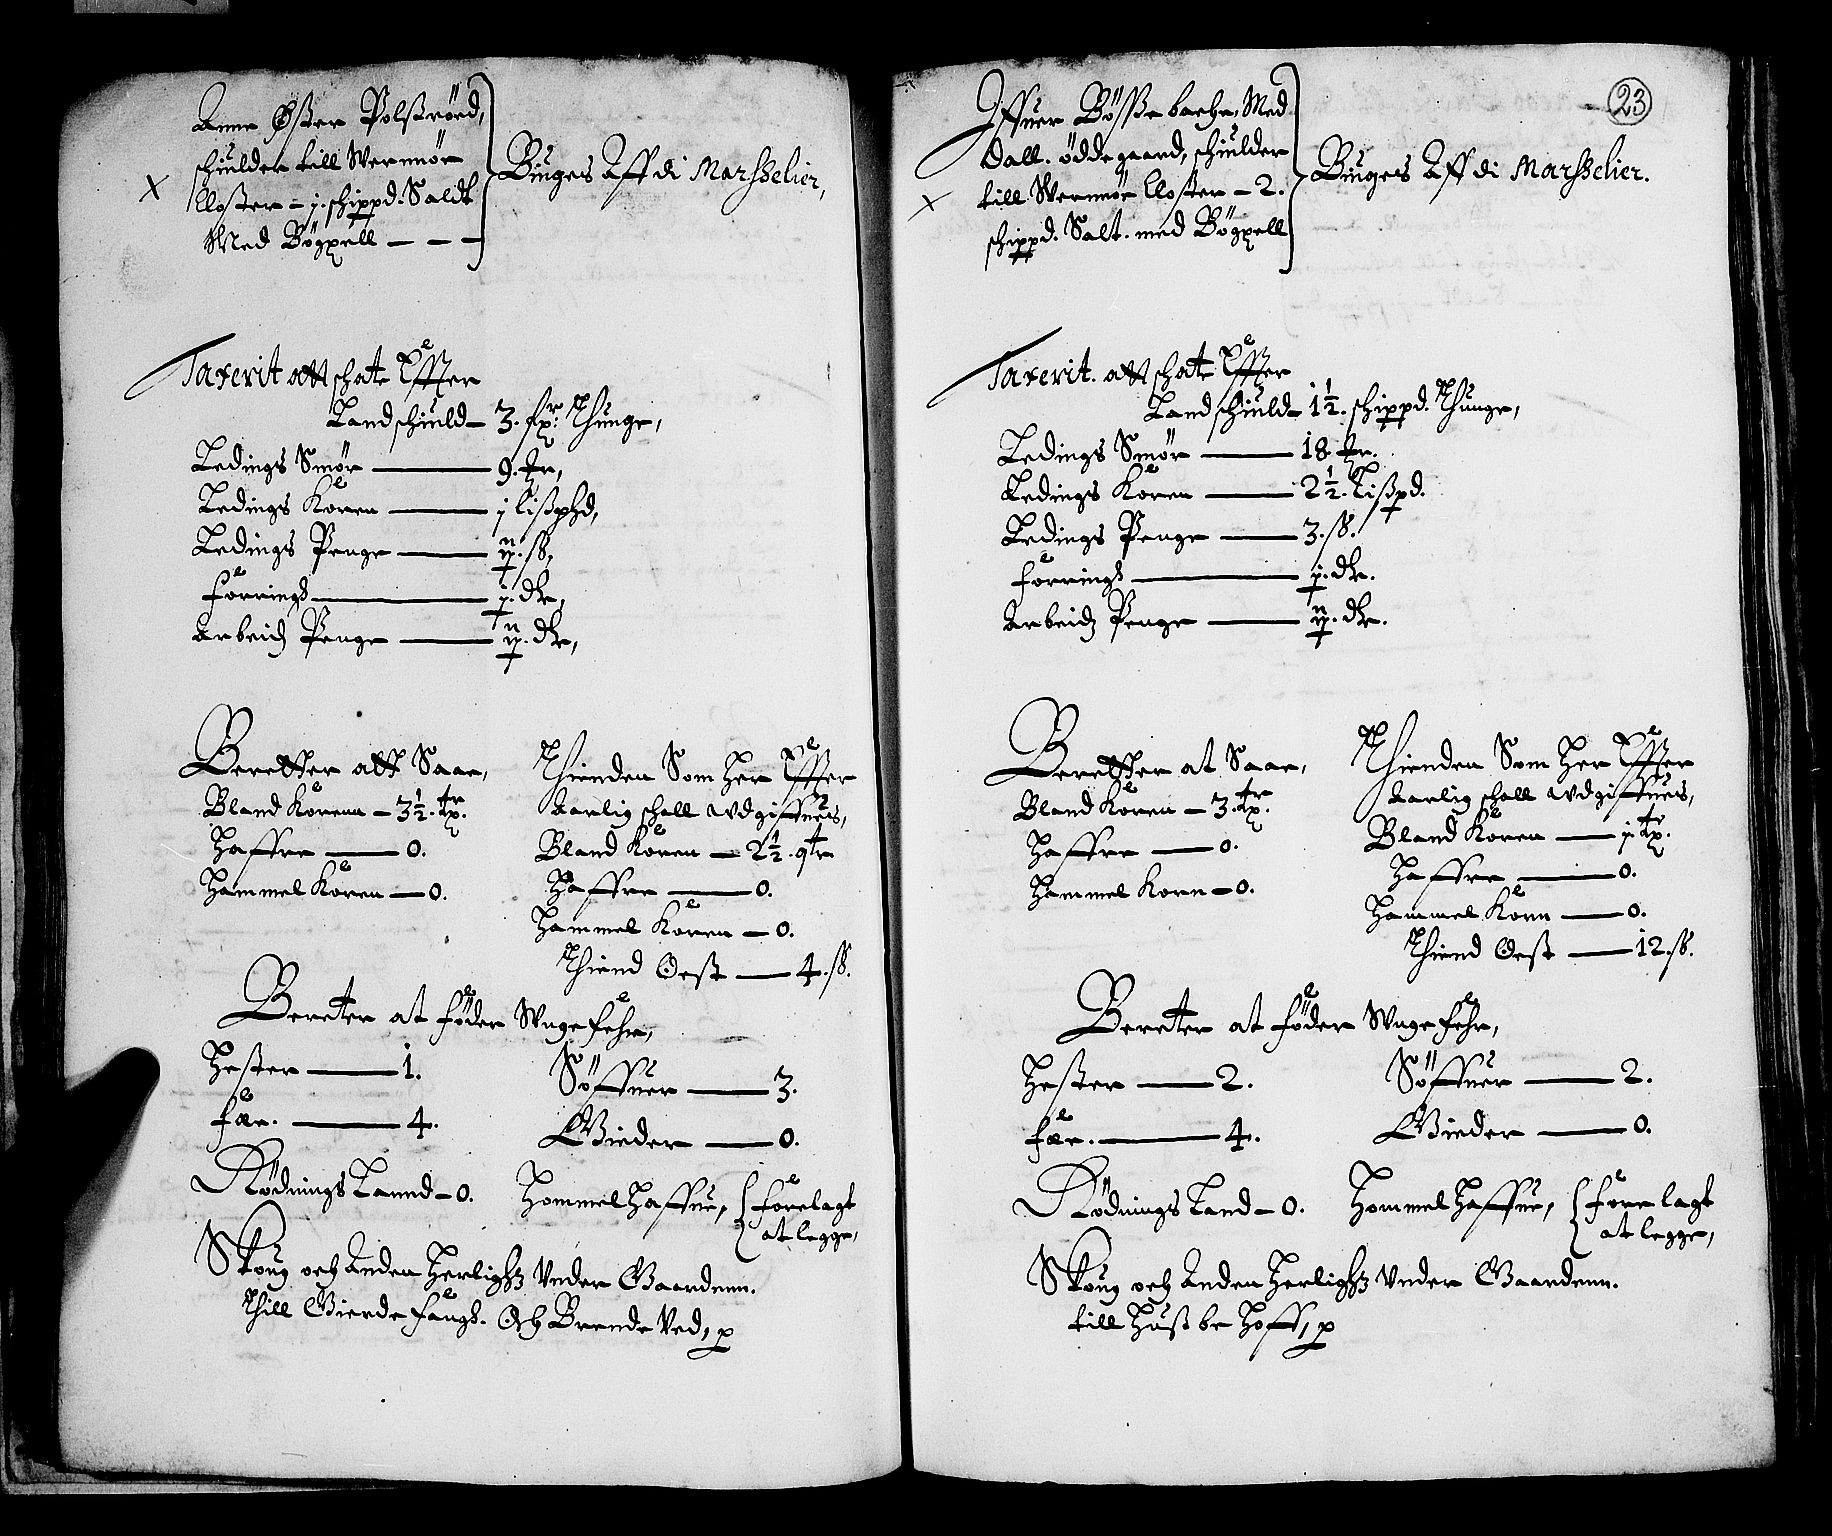 Anne Øster Polsröed,
schiulder till Wernnör
Closter - j. schippd. Saldt
Med Bögxell - - -
Büuges Aff di Marsselier,
x
Taxerit att schatte Effter
Landschiuld - 3. fr: Thunge,
Ledings Smör - 9. mr,
Ledings Koren - j lisphd,
Ledings Penge - ij. ss,
Forrings - j. dlr,
Arbeids Penge - ij. dlr,
Beretter att Saae,
Bland Korenn - 3½. tr.
Haffre - 0.
Hammel Koren - 0.
Thienden Som Her Effter
Aarlig schall udgiffues,
Bland Koren - 2½. qtr
Haffre - 0.
Hammel Koren - 0.
Thiend Oest - 4. ss.
Bereter at föder Wngefehr,
Hester - 1.
fæe. - 4.
Söffuer - 3.
Gieder - 0.
Rödnings Lannd - 0.
Hommel Haffue,
forelagt
at legge,
Skoug och Anden Herlighz Under Gaardenn.
Thill Gierde fangs. Och Brende Ved, p
23
Iffuer Bössebache, Med
Dall. ödde gaard, schiulder
till Wernnör Closter - 2.
schippd. Salt. med Bögxell
Büuges Aff di Marsselier.
x
Taxerit. att schate Effter
Landschiuld - 1½. schippd. Thunge,
Ledings Smör - 18. mr.
Ledings Koren - 2½. Lispd.
Ledings Penge - 3. ss.
forrings - j. dlr.
Arbeids Penge - ij. dlr.
Beretter at Saae,
Bland Koren - 3. tr.
Haffre - 0.
Hammel Korn - 0.
Thienden Som Her Effter
Aarlig schall udgiffues,
Bland Koren - j. tr.
Haffre - 0.
Hammel Korn - 0.
Thiend Oest - 12. ss.
Bereter at föder Wngefehr,
Hester - 2.
fæe. - 4.
Söffuer - 2.
Gieder - 0.
Rödnings Land - 0.
Hommel Haffue,
forelagt
at legge,
Skoug och Anden Herlighz Under Gaardenn.
till Hussbehoff, p